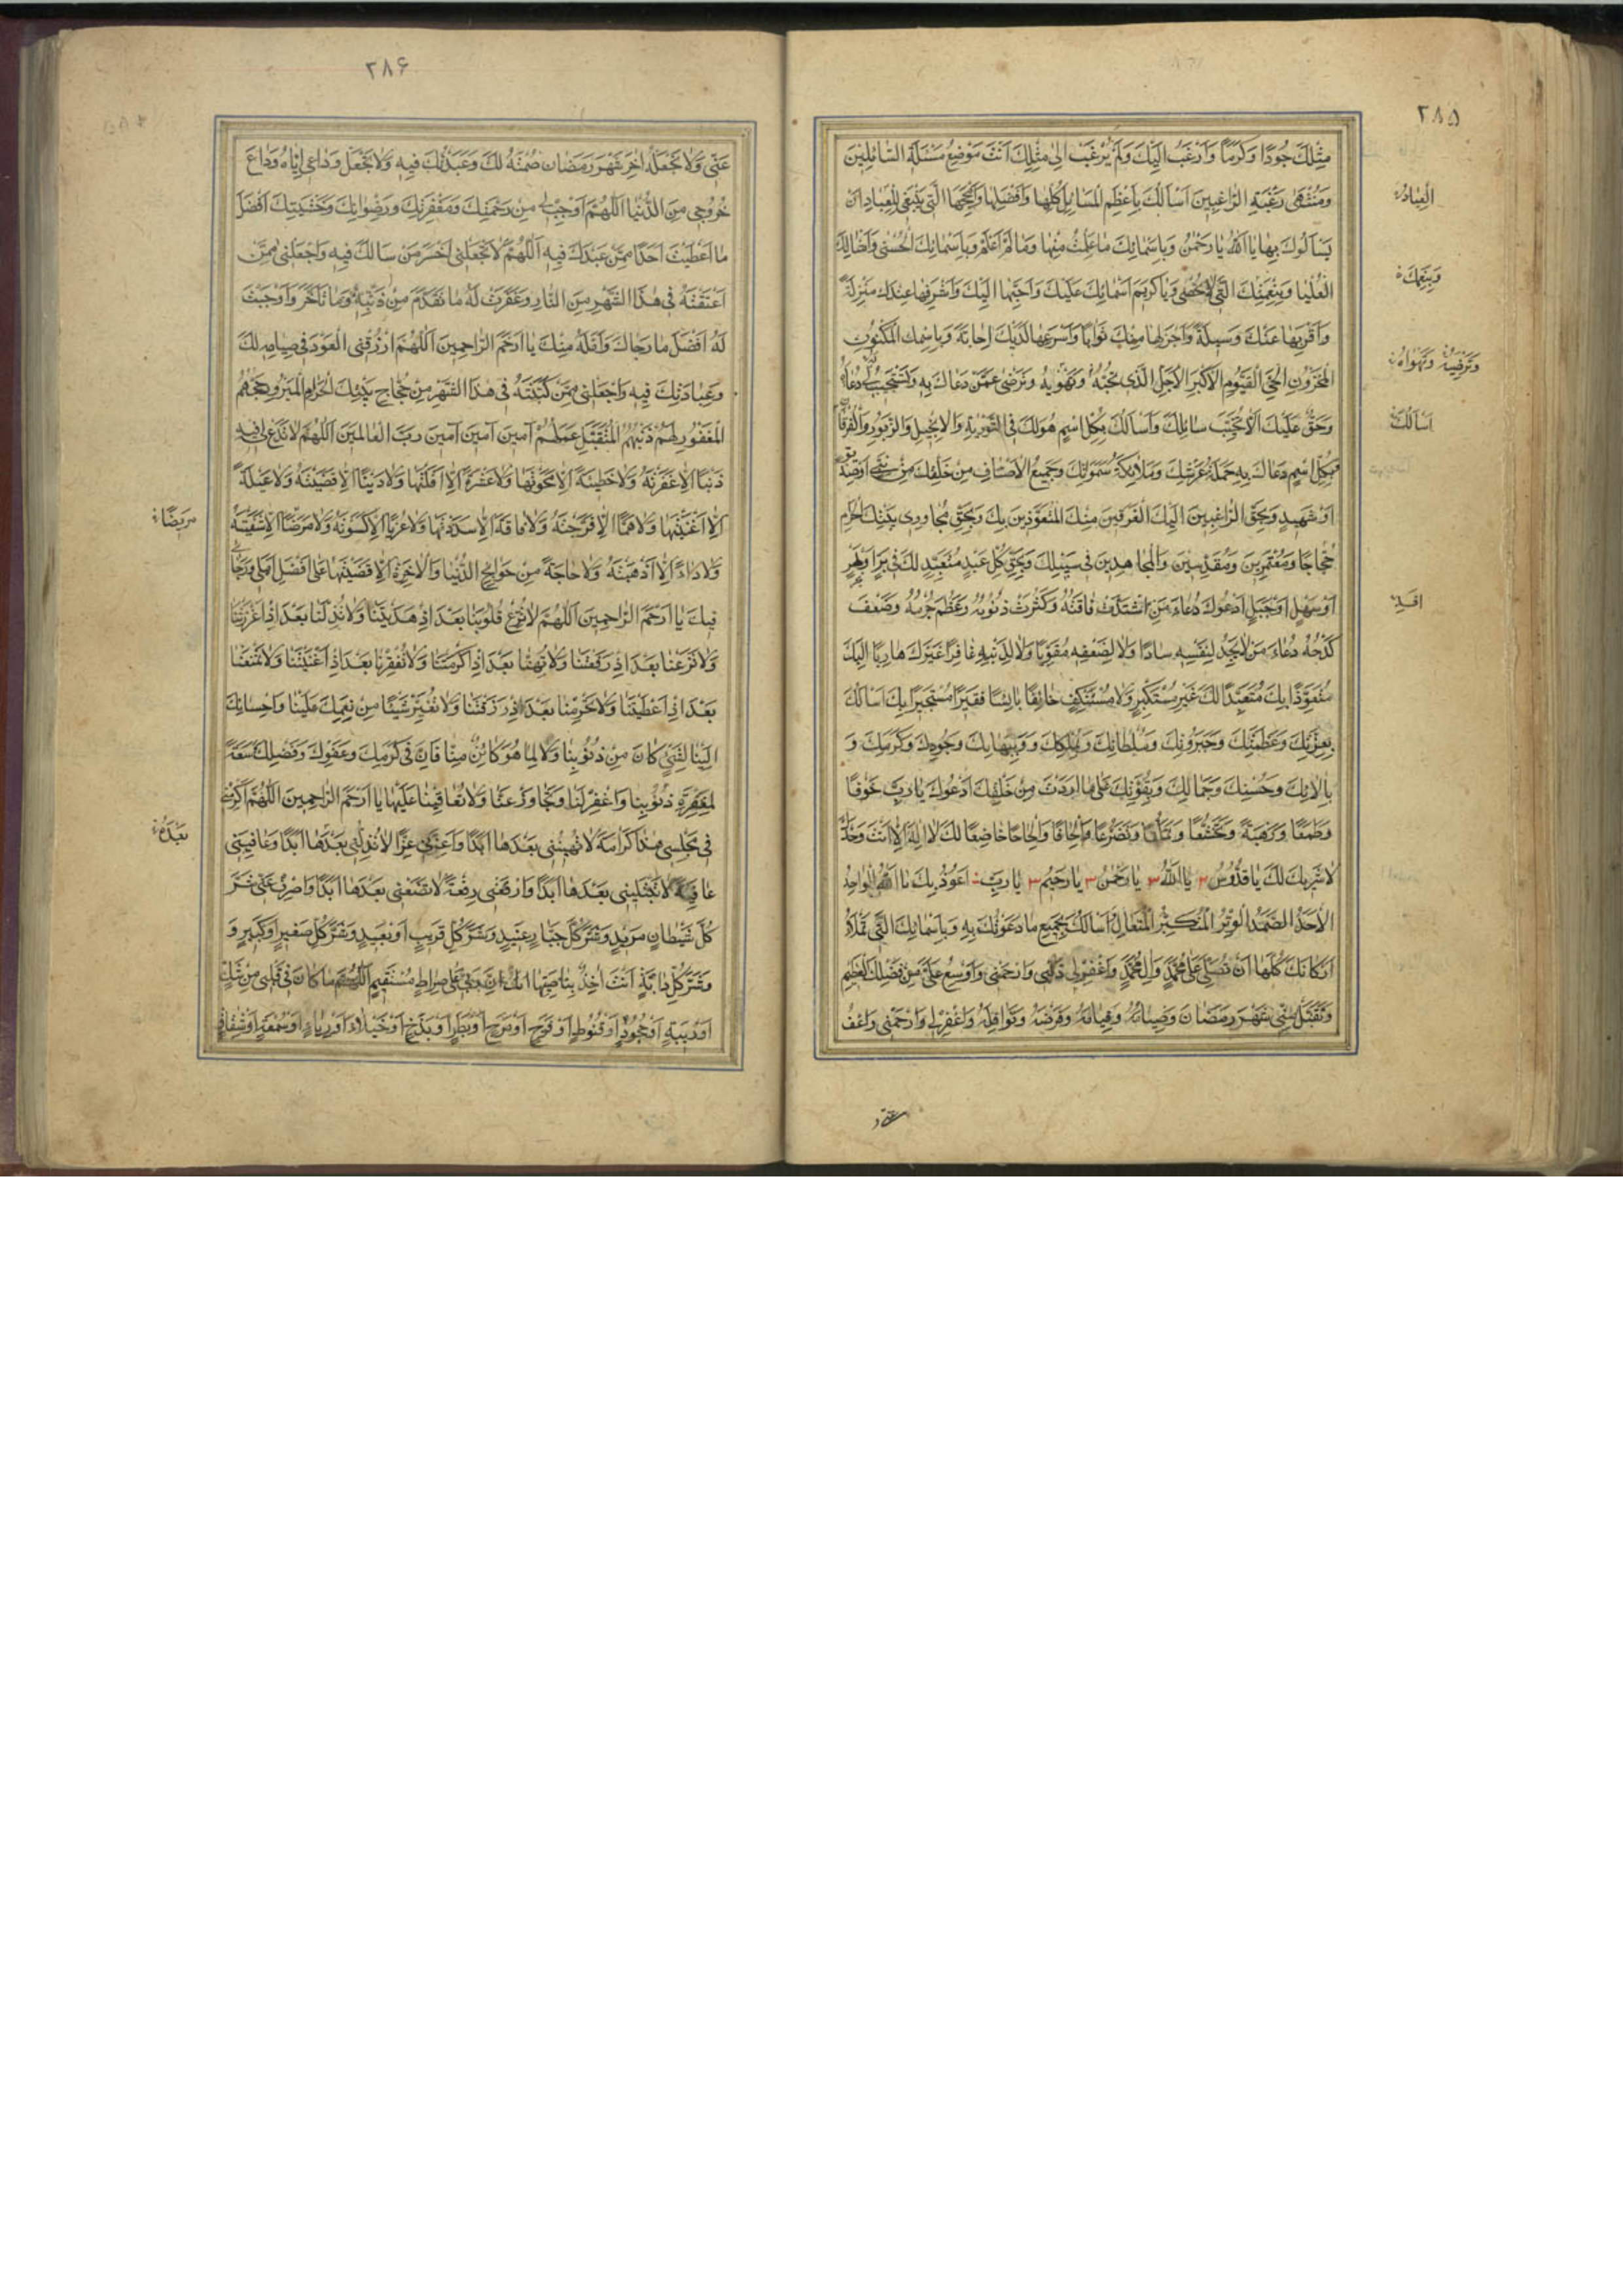 ۲۸۵
مِثْلِكَ جُودًا وَكَرَمًا وَاَرْغَبُ اِلَيْكَ وَلَمْ يُرْغَبْ اِلىٰ مِثْلِكَ اَنْتَ مَوْضِعُ مَسْئَلَةِ السّٰائِلينَ
وَمُنْتَهىٰ رَغْبَةِ الرّٰاغِبينَ اَسْاَلُكَ بِاَعْظَمِ الْمَسٰائِلِ كُلِّهٰا وَاَفْضَلِهٰا وَاَنْجَحِهَا الَّتى يَنْبَغى لِلْعِبٰادِ اَنْ
يَسْاَلُوكَ بِهٰا يٰا اَللّٰهُ يٰا رَحْمٰنُ وَبِاَسْمٰائِكَ مٰا عَلِمْتُ مِنْهٰا وَمٰا لَمْ اَعْلَمْ وَبِاَسْمٰائِكَ الْحُسْنىٰ وَاَمْثٰالِكَ
الْعُلْيٰا وَبِنِعْمَتِكَ الَّتى لٰا تُحْصىٰ وَبِاَكْرَمِ اَسْمٰائِكَ عَلَيْكَ وَاَحَبِّهٰا اِلَيْكَ وَاَشْرَفِهٰا عِنْدَكَ مَنْزِلَةً
وَاَقْرَبِهٰا مِنْكَ وَسيلَةً وَاَجْزَلِهٰا مِنْكَ ثَوٰابًا وَاَسْرَعِهٰا لَدَيْكَ اِجٰابَةً وَبِاسْمِكَ الْمَكْنُونِ
الْمَخْزُونِ الْحَىِّ الْقَيُّومِ الْاَكْبَرِ الْاَجَلِّ الَّذى تُحِبُّهُ وَتَهْوٰيهُ وَتَرْضىٰ عَمَّنْ دَعٰاكَ بِهِ وَتَسْتَجيبُ لَهُ دُعٰائَهُ
وَحَقٌّ عَلَيْكَ اَلّٰا تُخَيِّبَ سٰائِلَكَ وَاَسْاَلُكَ بِكُلِّ اسْمٍ هُوَ لَكَ فِى التَّوْرٰيةِ وَالْاِنْجيلِ وَالزَّبُورِ وَالْفُرْقٰانِ
وَبِكُلِّ اسْمٍ دَعٰاكَ بِهِ حَمَلَةُ عَرْشِكَ وَمَلٰائِكَةُ سَمٰوٰاتِكَ وَجَميعُ الْاَصْنٰافِ مِنْ خَلْقِكَ مِنْ نَبِىٍّ اَوْ صِدّيقٍ
اَوْ شَهيدٍ وَبِحَقِّ الرّٰاغِبينَ اِلَيْكَ الْفَرِقينَ مِنْكَ الْمُتَعَوِّذينَ بِكَ وَبِحَقِّ مُجٰاوِرى بَيْتِكَ الْحَرٰامِ
حُجّٰاجًا وَمُعْتَمِرينَ وَمُقَدِّسينَ وَالْمُجٰاهِدينَ فى سَبيلِكَ وَبِحَقِّ كُلِّ عَبْدٍ مُتَعَبِّدٍ لَكَ فى بَرٍّ اَوْ بَحْرٍ
اَوْ سَهْلٍ اَوْ جَبَلٍ اَدْعُوكَ دُعٰاءَ مَنِ اشْتَدَّتْ فٰاقَتُهُ وَكَثُرَتْ ذُنُوبُهُ وَعَظُمَ جُرْمُهُ وَضَعُفَ
كَدْحُهُ دُعٰاءَ مَنْ لٰا يَجِدُ لِنَفْسِهِ سٰادًّا وَلٰا لِضَعْفِهِ مُقَوِّيًا وَلٰا لِذَنْبِهِ غٰافِرًا غَيْرَكَ هٰارِبًا اِلَيْكَ
مُتَعَوِّذًا بِكَ مُتَعَبِّدًا لَكَ غَيْرَ مُسْتَكْبِرٍ وَلٰا مُسْتَنْكِفٍ خٰائِفًا بٰائِسًا فَقيرًا مُسْتَجيرًا بِكَ اَسْاَلُكَ
بِعِزَّتِكَ وَعَظَمَتِكَ وَجَبَرُوتِكَ وَسُلْطٰانِكَ وَبِمُلْكِكَ وَبِبَهٰائِكَ وَجُودِكَ وَكَرَمِكَ وَ
بِاٰلٰائِكَ وَحُسْنِكَ وَجَمٰالِكَ وَبِقُوَّتِكَ عَلىٰ مٰا اَرَدْتَ مِنْ خَلْقِكَ اَدْعُوكَ يٰا رَبِّ خَوْفًا
وَطَمَعًا وَرَهْبَةً وَتَخَشُّعًا وَتَمَلُّقًا وَتَضَرُّعًا وَاِلْحٰافًا وَاِلْحٰاحًا خٰاضِعًا لَكَ لٰا اِلٰهَ اِلّٰا اَنْتَ وَحْدَكَ
لٰا شَريكَ لَكَ يٰا قُدُّوسُ ۳ يٰا اَللّٰهُ ۳ يٰا رَحْمٰنُ ۳ يٰا رَحيمُ ۳ يٰا رَبِّ اَعُوذُ بِكَ يٰا اَللّٰهُ الْوٰاحِدُ
الْاَحَدُ الصَّمَدُ الْوِتْرُ الْمُتَكَبِّرُ الْمُتَعٰالِ اَسْاَلُكَ بِجَميعِ مٰا دَعَوْتُكَ بِهِ وَبِاَسْمٰائِكَ الَّتى تَمْلَأُ
اَرْكٰانَكَ كُلَّهٰا اَنْ تُصَلِّىَ عَلىٰ مُحَمَّدٍ وَاٰلِ مُحَمَّدٍ وَاغْفِرْ لى ذَنْبى وَارْحَمْنى وَاَوْسِعْ عَلَىَّ مِنْ فَضْلِكَ الْعَظيمِ
وَتَقَبَّلْ مِنّى شَهْرَ رَمَضٰانَ وَصِيٰامَهُ وَقِيٰامَهُ وَفَرْضَهُ وَنَوٰافِلَهُ وَاغْفِرْ لى وَارْحَمْنى وَاعْفُ
الْعِبٰادُ
وَبِنِعَمِكَ
وَتَرْضيهُ وَتَهْوٰاهُ
اَسْاَلُكَ
۲۸۶
عَنّى وَلٰا تَجْعَلْهُ اٰخِرَ شَهْرِ رَمَضٰانَ صُمْتُهُ لَكَ وَعَبَدْتُكَ فيهِ وَلٰا تَجْعَلْ وَدٰاعى اِيّٰاهُ وَدٰاعَ
خُرُوجى مِنَ الدُّنْيٰا اَللّٰهُمَّ اَوْجِبْ لى مِنْ رَحْمَتِكَ وَمَغْفِرَتِكَ وَرِضْوٰانِكَ وَخَشْيَتِكَ اَفْضَلَ
مٰا اَعْطَيْتَ اَحَدًا مِمَّنْ عَبَدَكَ فيهِ اَللّٰهُمَّ لٰا تَجْعَلْنى اَخْسَرَ مَنْ سَاَلَكَ فيهِ وَاجْعَلْنى مِمَّنْ
اَعْتَقْتَهُ فى هٰذَا الشَّهْرِ مِنَ النّٰارِ وَغَفَرْتَ لَهُ مٰا تَقَدَّمَ مِنْ ذَنْبِهِ وَمٰا تَاَخَّرَ وَاَوْجَبْتَ
لَهُ اَفْضَلَ مٰا رَجٰاكَ وَاَمَّلَهُ مِنْكَ يٰا اَرْحَمَ الرّٰاحِمينَ اَللّٰهُمَّ ارْزُقْنِى الْعَوْدَ فى صِيٰامِهِ لَكَ
وَعِبٰادَتِكَ فيهِ وَاجْعَلْنى مِمَّنْ كَتَبْتَهُ فى هٰذَا الشَّهْرِ مِنْ حُجّٰاجِ بَيْتِكَ الْحَرٰامِ الْمَبْرُورِ حَجُّهُمُ
الْمَغْفُورِ لَهُمْ ذَنْبُهُمُ الْمُتَقَبَّلِ عَمَلُهُمْ اٰمينَ اٰمينَ اٰمينَ رَبَّ الْعٰالَمينَ اَللّٰهُمَّ لٰا تَدَعْ لى فيهِ
ذَنْبًا اِلّٰا غَفَرْتَهُ وَلٰا خَطيئَةً اِلّٰا مَحَوْتَهٰا وَلٰا عَثْرَةً اِلّٰا اَقَلْتَهٰا وَلٰا دَيْنًا اِلّٰا قَضَيْتَهُ وَلٰا عَيْلَةً
اِلّٰا اَغْنَيْتَهٰا وَلٰا هَمًّا اِلّٰا فَرَّجْتَهُ وَلٰا فٰاقَةً اِلّٰا سَدَدْتَهٰا وَلٰا عُرْيًا اِلّٰا كَسَوْتَهُ وَلٰا مَرَضًا اِلّٰا شَفَيْتَهُ
وَلٰا دٰاءً اِلّٰا اَذْهَبْتَهُ وَلٰا حٰاجَةً مِنْ حَوٰائِجِ الدُّنْيٰا وَالْاٰخِرَةِ اِلّٰا قَضَيْتَهٰا عَلىٰ اَفْضَلِ اَمَلى وَرَجٰائى
فيكَ يٰا اَرْحَمَ الرّٰاحِمينَ اَللّٰهُمَّ لٰا تُزِغْ قُلُوبَنٰا بَعْدَ اِذْ هَدَيْتَنٰا وَلٰا تُذِلَّنٰا بَعْدَ اِذْ اَعْزَزْتَنٰا
وَلٰا تَضَعْنٰا بَعْدَ اِذْ رَفَعْتَنٰا وَلٰا تُهِنّٰا بَعْدَ اِذْ اَكْرَمْتَنٰا وَلٰا تُفْقِرْنٰا بَعْدَ اِذْ اَغْنَيْتَنٰا وَلٰا تَمْنَعْنٰا
بَعْدَ اِذْ اَعْطَيْتَنٰا وَلٰا تَحْرِمْنٰا بَعْدَ اِذْ رَزَقْتَنٰا وَلٰا تُغَيِّرْ شَيْئًا مِنْ نِعَمِكَ عَلَيْنٰا وَاِحْسٰانِكَ
اِلَيْنٰا لِشَىْءٍ كٰانَ مِنْ ذُنُوبِنٰا وَلٰا لِمٰا هُوَ كٰائِنٌ مِنّٰا فَاِنَّ فى كَرَمِكَ وَعَفْوِكَ وَفَضْلِكَ سَعَةً
لِمَغْفِرَةِ ذُنُوبِنٰا وَاغْفِرْ لَنٰا وَتَجٰاوَزْ عَنّٰا وَلٰا تُعٰاقِبْنٰا عَلَيْهٰا يٰا اَرْحَمَ الرّٰاحِمينَ اَللّٰهُمَّ اَكْرِمْنى
فى مَجْلِسى هٰذٰا كَرٰامَةً لٰا تُهينُنى بَعْدَهٰا اَبَدًا وَاَعِزَّنى عِزًّا لٰا تُذِلُّنى بَعْدَهٰا اَبَدًا وَعٰافِنى
عٰافِيَةً لٰا تَبْتَلينى بَعْدَهٰا اَبَدًا وَارْفَعْنى رِفْعَةً لٰا تَضَعُنى بَعْدَهٰا اَبَدًا وَاصْرِفْ عَنّى شَرَّ
كُلِّ شَيْطٰانٍ مَريدٍ وَشَرَّ كُلِّ جَبّٰارٍ عَنيدٍ وَشَرَّ كُلِّ قَريبٍ اَوْ بَعيدٍ وَشَرَّ كُلِّ صَغيرٍ اَوْ كَبيرٍ وَ
وَشَرَّ كُلِّ دٰابَّةٍ اَنْتَ اٰخِذٌ بِنٰاصِيَتِهٰا اِنَّ رَبّى عَلىٰ صِرٰاطٍ مُسْتَقيمٍ اَللّٰهُمَّ مٰا كٰانَ فى قَلْبى مِنْ شَكٍّ
اَوْ ريبَةٍ اَوْ جُحُودٍ اَوْ قُنُوطٍ اَوْ فَرَحٍ اَوْ مَرَحٍ اَوْ بَطَرٍ اَوْ بَذَخٍ اَوْ خُيَلٰاءَ اَوْ رِيٰاءٍ اَوْ سُمْعَةٍ اَوْ شِقٰاقٍ
مَريضًا
بَعْدَهُ